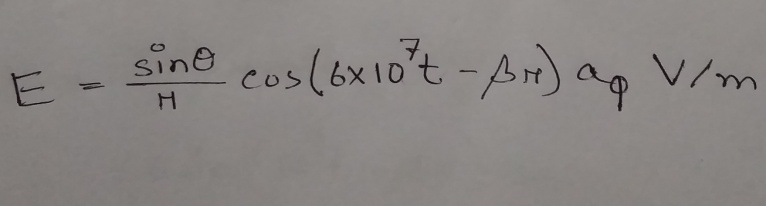 E = sinθ/r cos(6×10⁷t - βr) aφ V/m